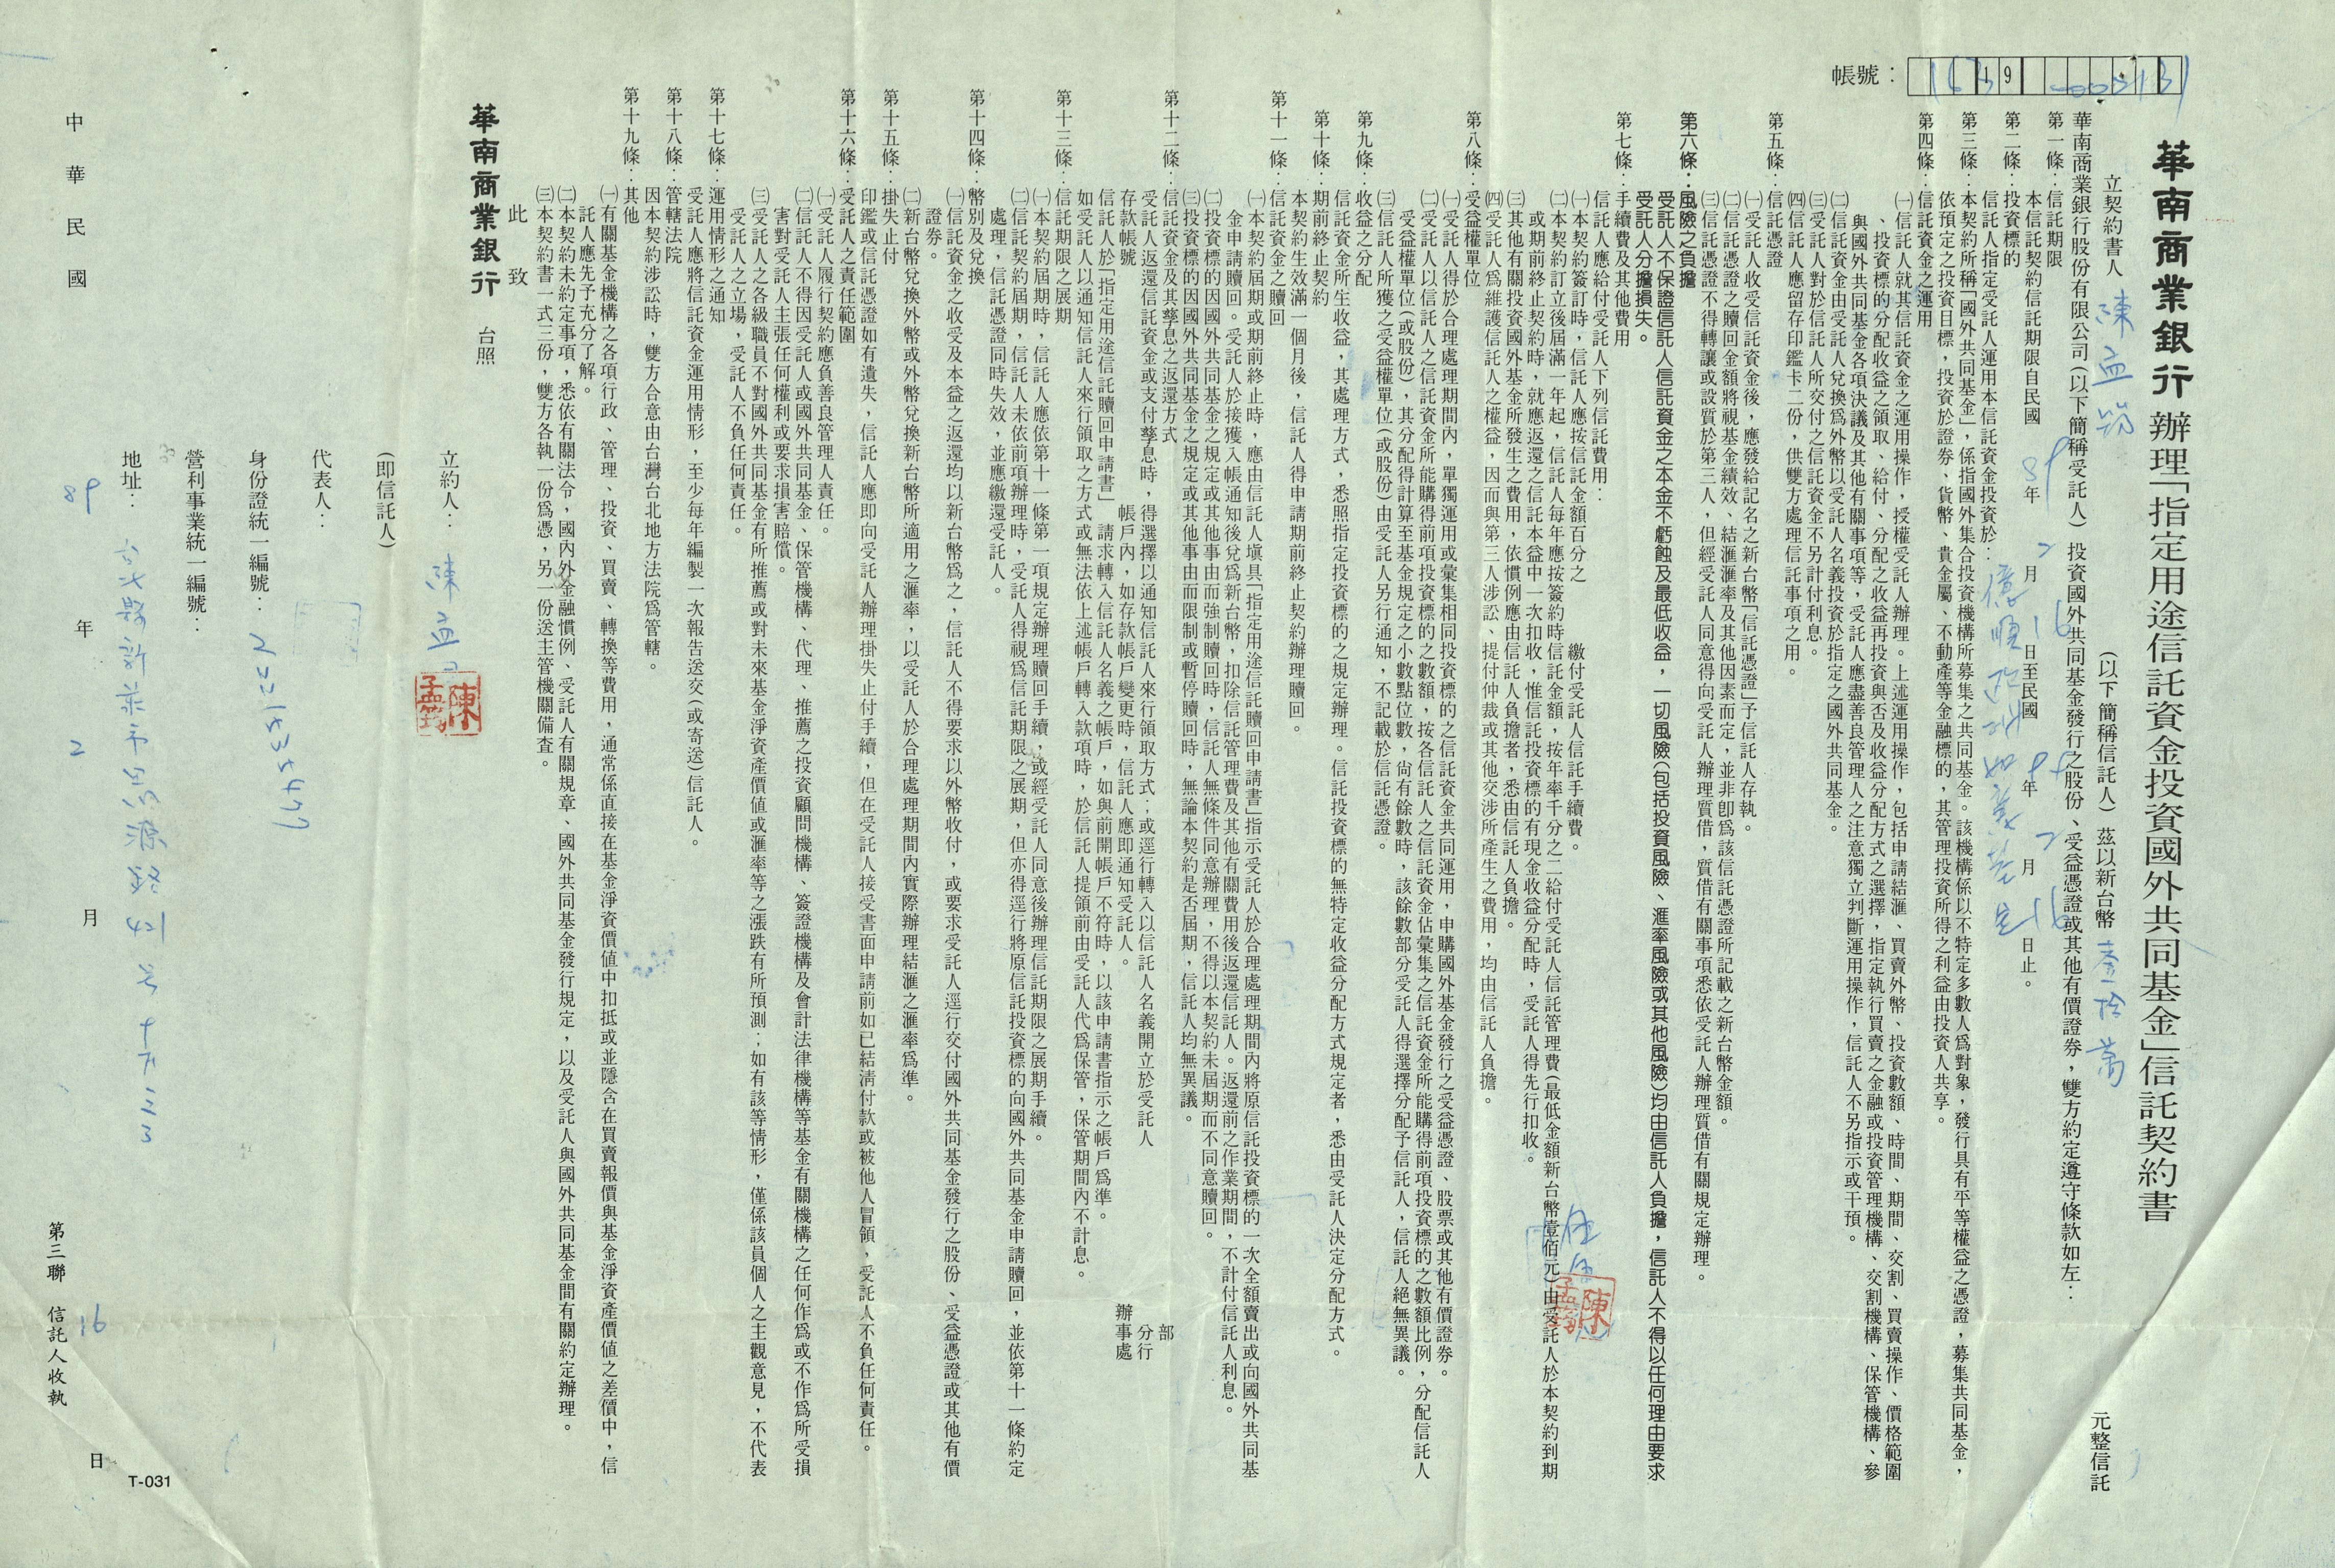 帳號：
華南商業銀行辦理「指定用途信託資金投資國外共同基金」信託契約書
立契約書人 陳孟筠 （以下簡稱信託人）茲以新台幣 叁拾萬 元整信託
華南商業銀行股份有限公司（以下簡稱受託人）投資國外共同基金發行之股份、受益憑證或其他有價證券，雙方約定遵守條款如左：
第一條：信託期限
本信託契約信託期限自民國 89 年 2 月 16 日至民國 年 2 月 16 日止。
第二條：投資標的
信託人指定受託人運用本信託資金投資於：
第三條：本契約所稱「國外共同基金」，係指國外集合投資機構所募集之共同基金。該機構係以不特定多數人為對象，發行具有平等權益之憑證，募集共同基金，
依預定之投資目標，投資於證券、貨幣、貴金屬、不動產等金融標的，其管理投資所得之利益由投資人共享。
第四條：信託資金之運用
㈠信託人就其信託資金之運用操作，授權受託人辦理。上述運用操作，包括申請結滙、買賣外幣、投資數額、時間、期間、交割、買賣操作、價格範圍
、投資標的分配收益之領取、給付、分配之收益再投資與否及收益分配方式之選擇，指定執行買賣之金融或投資管理機構、交割機構、保管機構、參
與國外共同基金各項決議及其他有關事項等，受託人應盡善良管理人之注意獨立判斷運用操作，信託人不另指示或干預。
㈡信託資金由受託人兌換為外幣以受託人名義投資於指定之國外共同基金。
㈢受託人對於信託人所交付之信託資金不另計付利息。
㈣信託人應留存印鑑卡二份，供雙方處理信託事項之用。
第五條：信託憑證
㈠受託人收受信託資金後，應發給記名之新台幣「信託憑證」予信託人存執。
㈡信託憑證之贖回金額將視基金績效、結滙滙率及其他因素而定，並非卽為該信託憑證所記載之新台幣金額。
㈢信託憑證不得轉讓或設質於第三人，但經受託人同意得向受託人辦理質借，質借有關事項悉依受託人辦理質借有關規定辦理。
第六條：風險之負擔
受託人不保證信託人信託資金之本金不虧蝕及最低收益，一切風險（包括投資風險、滙率風險或其他風險）均由信託人負擔，信託人不得以任何理由要求
受託人分擔損失。
第七條：手續費及其他費用
信託人應給付受託人下列信託費用：
㈠本契約簽訂時，信託人應按信託金額百分之 繳付受託人信託手續費。
㈡本契約訂立後屆滿一年起，信託人每年應按簽約時信託金額，按年率千分之二給付受託人信託管理費（最低金額新台幣壹佰元）由受託人於本契約到期
或期前終止契約時，就應返還之信託本益中一次扣收，惟信託投資標的有現金收益分配時，受託人得先行扣收。
㈢其他有關投資國外基金所發生之費用，依慣例應由信託人負擔者，悉由信託人負擔。
㈣受託人為維護信託人之權益，因而與第三人涉訟、提付仲裁或其他交涉所產生之費用，均由信託人負擔。
第八條：受益權單位
㈠受託人得於合理處理期間內，單獨運用或彙集相同投資標的之信託資金共同運用，申購國外基金發行之受益憑證、股票或其他有價證券。
㈡受託人以信託人之信託資金所能購得前項投資標的之數額，按各信託人之信託資金佔彙集之信託資金所能購得前項投資標的之數額比例，分配信託人
受益權單位（或股份），其分配得計算至基金規定之小數點位數，尚有餘數時，該餘數部分受託人得選擇分配予信託人，信託人絕無異議。
㈢信託人所獲之受益權單位（或股份）由受託人另行通知，不記載於信託憑證。
第九條：收益之分配
信託資金所生收益，其處理方式，悉照指定投資標的之規定辦理。信託投資標的無特定收益分配方式規定者，悉由受託人決定分配方式。
第十條：期前終止契約
本契約生效滿一個月後，信託人得申請期前終止契約辦理贖回。
第十一條：信託資金之贖回
㈠本契約屆期時或期前終止時，應由信託人塡具「指定用途信託贖回申請書」指示受託人於合理處理期間內將原信託投資標的一次全額賣出或向國外共同基
金申請贖回。受託人於接獲入帳通知後兌為新台幣，扣除信託管理費及其他有關費用後返還信託人。返還前之作業期間，不計付信託人利息。
㈡投資標的因國外共同基金之規定或其他事由而強制贖回時，信託人無條件同意辦理，不得以本契約未屆期而不同意贖回。
㈢投資標的因國外共同基金之規定或其他事由而限制或暫停贖回時，無論本契約是否屆期，信託人均無異議。
第十二條：信託資金及其孳息之返還方式
受託人返還信託資金或支付孳息時，得選擇以通知信託人來行領取方式；或逕行轉入以信託人名義開立於受託人 部 分行 辦事處
存款帳號 帳戶內，如存款帳戶變更時，信託人應即通知受託人。
信託人於「指定用途信託贖回申請書」請求轉入信託人名義之帳戶，如與前開帳戶不符時，以該申請書指示之帳戶為準。
如受託人以通知信託人來行領取之方式或無法依上述帳戶轉入款項時，於信託人提領前由受託人代為保管，保管期間內不計息。
第十三條：信託期限之展期
㈠本契約屆期時，信託人應依第十一條第一項規定辦理贖回手續，或經受託人同意後辦理信託期限之展期手續。
㈡信託契約屆期，信託人未依前項辦理時，受託人得視為信託期限之展期，但亦得逕行將原信託投資標的向國外共同基金申請贖回，並依第十一條約定
處理，信託憑證同時失效，並應繳還受託人。
第十四條：幣別及兌換
㈠信託資金之收受及本益之返還均以新台幣為之，信託人不得要求以外幣收付，或要求受託人逕行交付國外共同基金發行之股份、受益憑證或其他有價
證券。
㈡新台幣兌換外幣或外幣兌換新台幣所適用之滙率，以受託人於合理處理期間內實際辦理結滙之滙率為準。
第十五條：掛失止付
印鑑或信託憑證如有遺失，信託人應即向受託人辦理掛失止付手續，但在受託人接受書面申請前如已結清付款或被他人冒領，受託人不負任何責任。
第十六條：受託人之責任範圍
㈠受託人履行契約應負善良管理人責任。
㈡信託人不得因受託人或國外共同基金、保管機構、代理、推薦之投資顧問機構、簽證機構及會計法律機構等基金有關機構之任何作為或不作為所受損
害對受託人主張任何權利或要求損害賠償。
㈢受託人之各級職員不對國外共同基金有所推薦或對未來基金淨資產價値或滙率等之漲跌有所預測；如有該等情形，僅係該員個人之主觀意見，不代表
受託人之立場，受託人不負任何責任。
第十七條：運用情形之通知
受託人應將信託資金運用情形，至少每年編製一次報告送交（或寄送）信託人。
第十八條：管轄法院
因本契約涉訟時，雙方合意由台灣台北地方法院為管轄。
第十九條：其他
㈠有關基金機構之各項行政、管理、投資、買賣、轉換等費用，通常係直接在基金淨資價値中扣抵或並隱含在買賣報價與基金淨資產價値之差價中，信
託人應先予充分了解。
㈡本契約未約定事項，悉依有關法令，國內外金融慣例、受託人有關規章、國外共同基金發行規定，以及受託人與國外共同基金間有關約定辦理。
㈢本契約書一式三份，雙方各執一份為憑，另一份送主管機關備查。
此 致
華南商業銀行 台照
立約人： 陳孟筠
（即信託人）
代表人：
身份證統一編號：
營利事業統一編號：
地址：
中華民國 89 年 2 月 16 日
第三聯 信託人收執
T-031